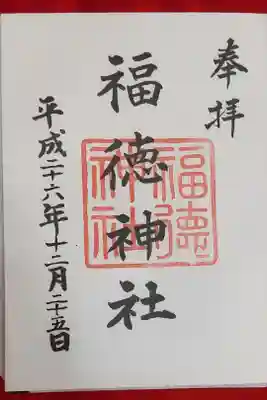 奉拝
福徳神社
福徳神社
平成二十六年十二月二十五日